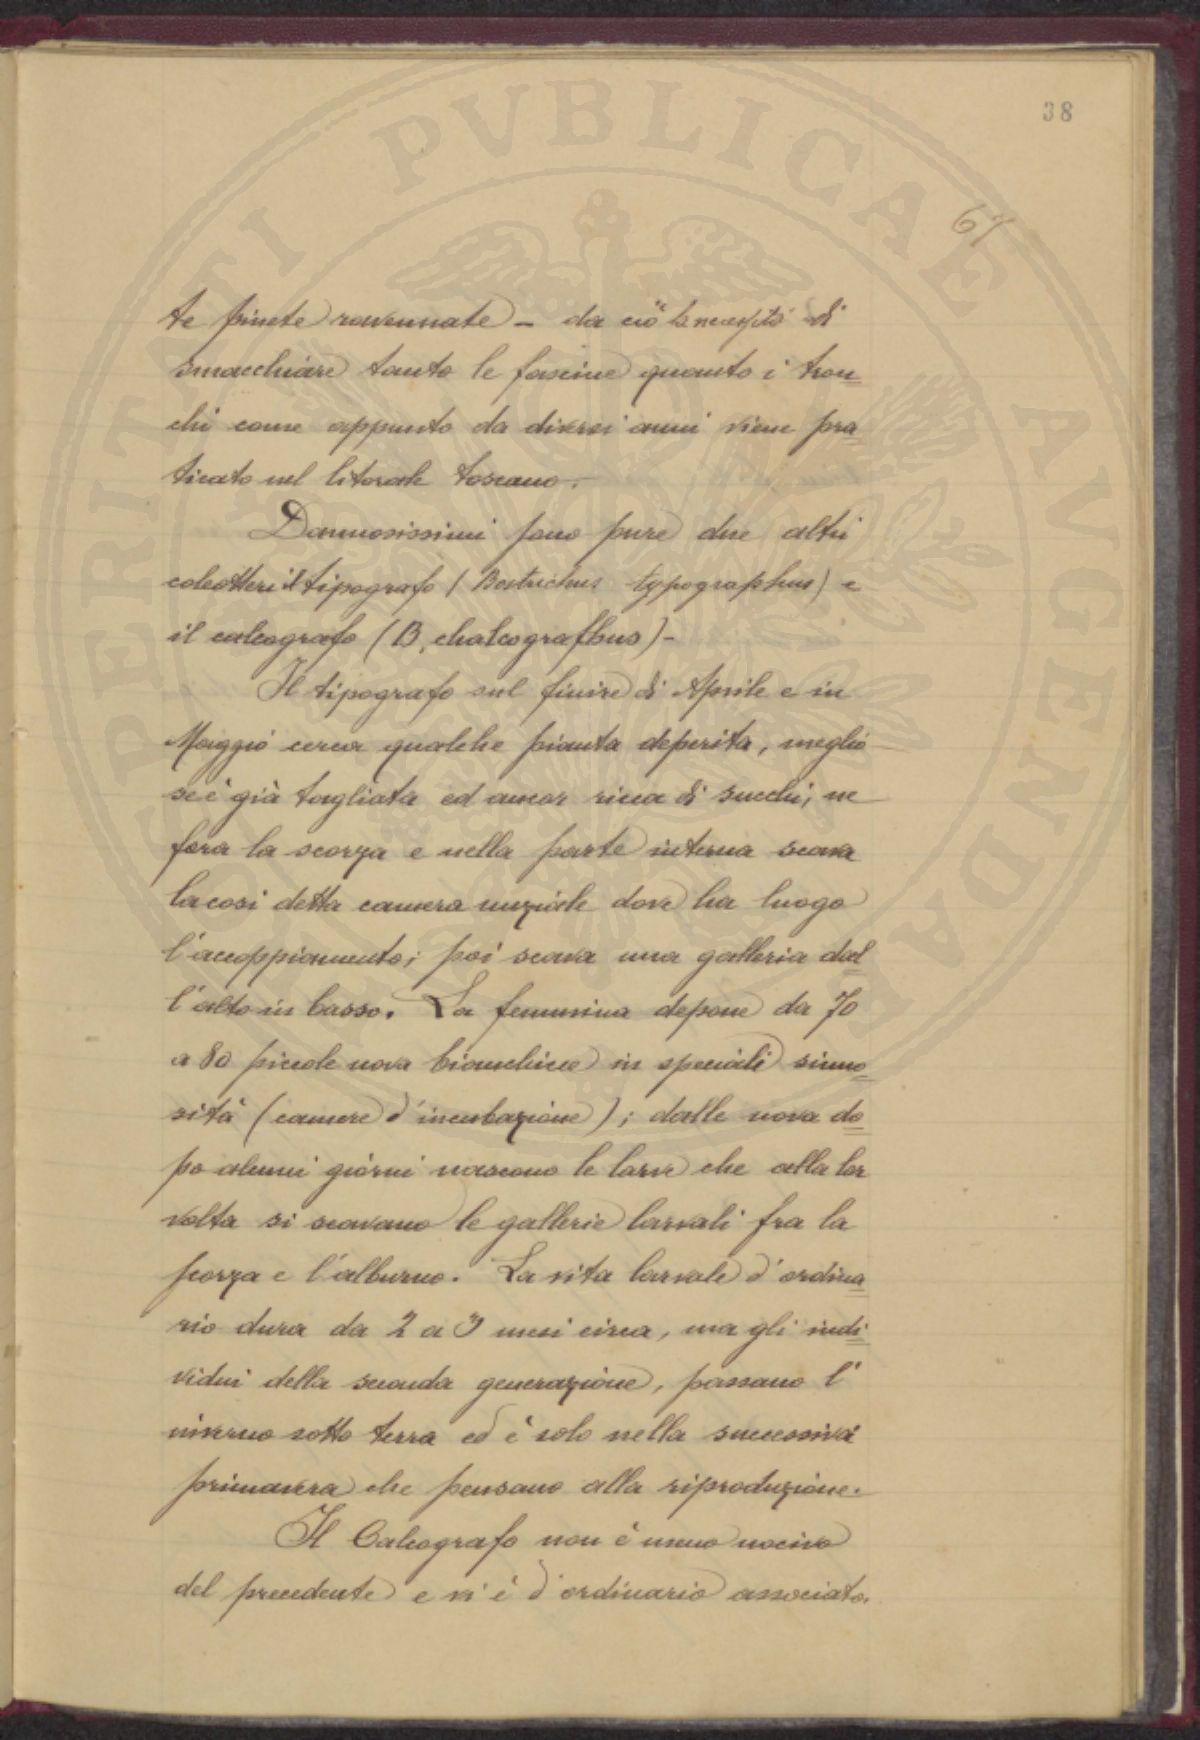 38
67
te pinete ravennate – da ciò la necessità di
smacchiare tanto le fascine quanto i tron=
chi come appunto da diversi anni viene pra=
ticato nel litorale toscano.
Dannosissimi sono pure due altri
coleotteri il tipografo (Bostrichus typographus) e
il calcografo (B. chalcografhus) –
Il tipografo sul finire di Aprile e in
Maggio cerca qualche pianta deperita, meglio
se è già tagliata ed ancor ricca di succhi; ne
fora la scorza e nella parte interna scava
la così detta camera nuziale dove ha luogo
l'accoppiamento; poi scava una galleria dal=
l'alto in basso. La femmina depone da 70
a 80 piccole uova bianchicce in speciali sinuo=
sità (camere d'incubazione); dalle uova do=
po alcuni giorni nascono le larve che alla lor
volta si scavano le gallerie larvali fra la
scorza e l'alburno. La vita larvale d'ordina=
rio dura da 2 a 3 mesi circa, ma gli indi=
vidui della seconda generazione, passano l'
inverno sotto terra ed è solo nella successiva
primavera che pensano alla riproduzione.
Il Calcografo non è meno nocivo
del precedente e vi è d'ordinario associato.
PERITATI PVBLICAE AVGENDAE